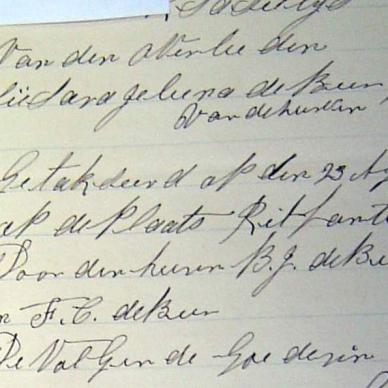 Van den overleden
de Beer
Van de heeren
Getakseerd op den 23
op de Plaats Rietfonte
Door den heeren B.J. de Be
F.C. de Beer
De Volgende Goederen